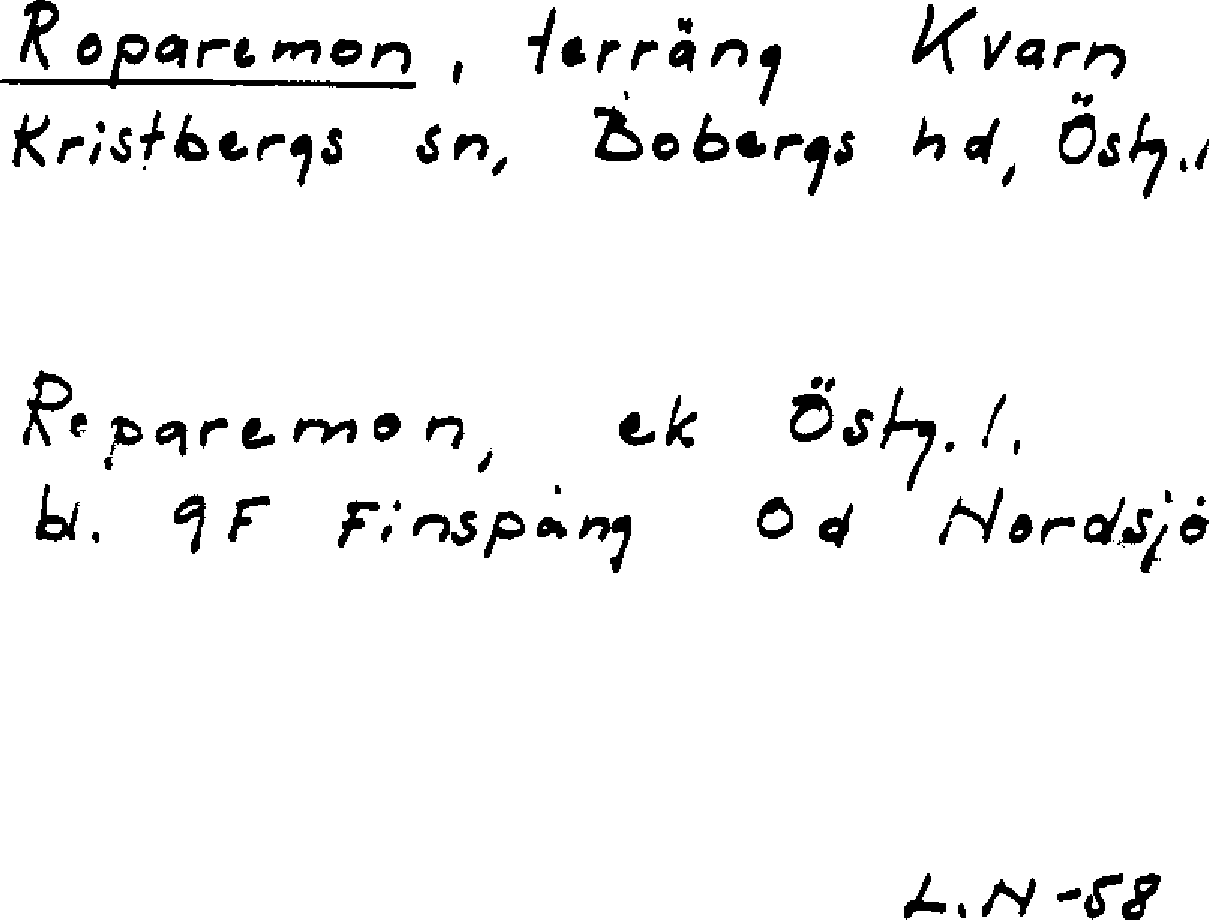 Roparemon, terräng Kvarn
Kristbergs sn, Bobergs hd, Östg.l
Roparemon, ek Östg.l.
bl. 9F Finspång 0d Nordsjö
L.N -58